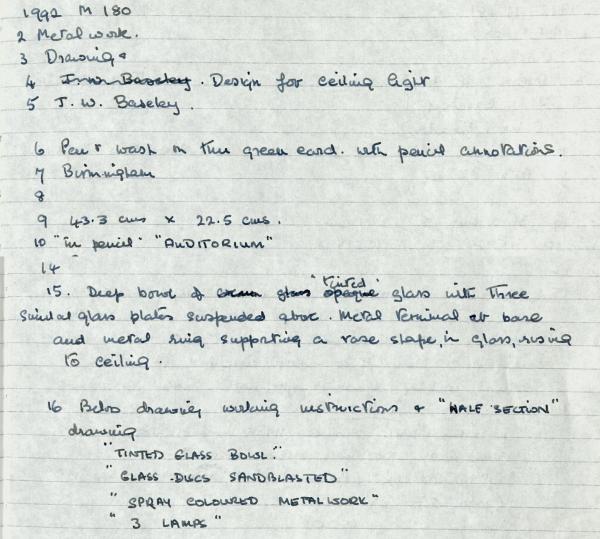 1992 M 180
2 Metal work.
3 Drawing.
4 J. W. Baseley. Design for ceiling light
5 J. W. Baseley.
6 Pen & wash on thin green card. with pencil annotations.
7 Birmingham
8
9 43.3 cms x 22.5 cms.
10 "in pencil" "AUDITORIUM"
14
15. Deep bowl of cream glass opaque "tinted" glass with three
similar glass plates suspended above. Metal terminal at base
and metal ring supporting a vase shape, in glass, rising
to ceiling.
16 Below drawing working instructions & "HALF SECTION"
drawing
"TINTED GLASS BOWL."
"GLASS DISCS SANDBLASTED"
"SPRAY COLOURED METALWORK"
"3 LAMPS"